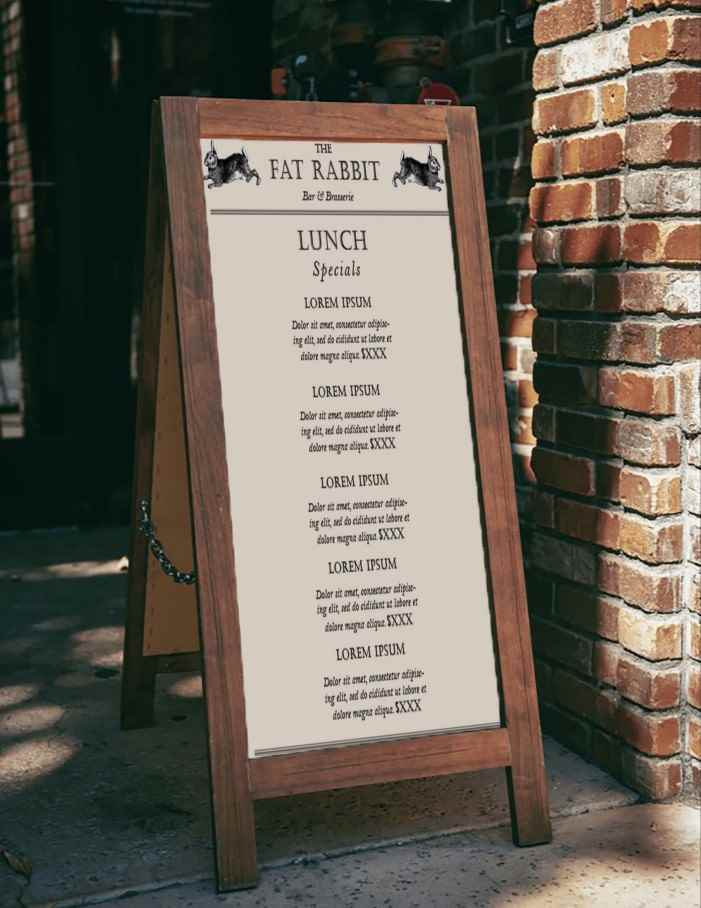 THE
FAT RABBIT
Bar & Brasserie
LUNCH
Specials
LOREM IPSUM
Dolor sit amet, consectetur adipisc-
ing elit, sed do cididunt ut labore et
dolore magna aliqua. $XXX
LOREM IPSUM
Dolor sit amet, consectetur adipisc-
ing elit, sed do cididunt ut labore et
dolore magna aliqua. $XXX
LOREM IPSUM
Dolor sit amet, consectetur adipisc-
ing elit, sed do cididunt ut labore et
dolore magna aliqua. $XXX
LOREM IPSUM
Dolor sit amet, consectetur adipisc-
ing elit, sed do cididunt ut labore et
dolore magna aliqua. $XXX
LOREM IPSUM
Dolor sit amet, consectetur adipisc-
ing elit, sed do cididunt ut labore et
dolore magna aliqua. $XXX